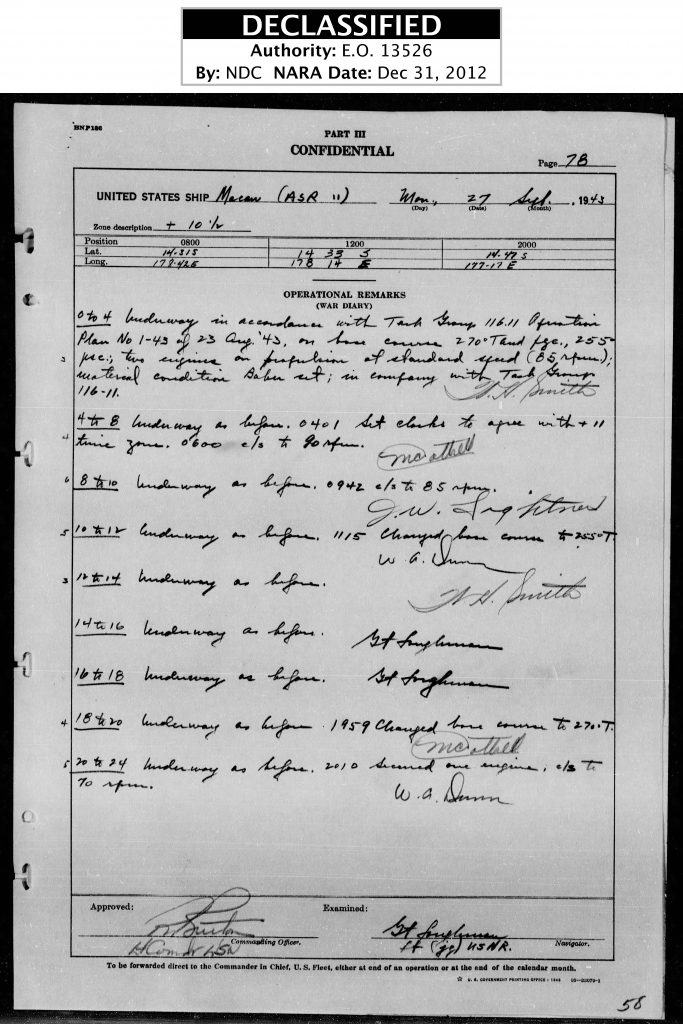 DECLASSIFIED
Authority: E.O. 13526
By: NDC NARA Date: Dec 31, 2012
BNP186
PART III
CONFIDENTIAL
Page 78
UNITED STATES SHIP Macaw (ASR 11) Mon, 27 Sept. , 1943
(Day) (Date) (Month)
Zone description + 10 1/2
Position 0800 1200 2000
Lat. 14-31S 14 33 S 14-47 S
Long. 178 14 E 177-17 E
OPERATIONAL REMARKS
(WAR DIARY)
0 to 4 Underway in accordance with Task Group 116.11 Operation
Plan No 1-43 of 23 Aug '43, on base course 270°T and pgc, 255°
3 psc; two engines on propulsion at standard speed (85 rpm.);
material condition Baker set; in company with Task Group
116-11. W. H. Smith
4 to 8 Underway as before. 0401 Set clocks to agree with + 11
4 time zone. 0600 c/s to 90 rpm.
6 8 to 10 Underway as before. 0942 c/s to 85 rpm.
J. W. Lightner
5 10 to 12 Underway as before. 1115 Changed base course to 255°T.
W. A. Dunn
3 12 to 14 Underway as before.
W. H. Smith
14 to 16 Underway as before.
16 to 18 Underway as before.
4 18 to 20 Underway as before. 1959 Changed base course to 270°T.
5 20 to 24 Underway as before. 2010 Secured one engine, c/s to
70 rpm. W. A. Dunn
Approved: Examined:
Commanding Officer.
Lt (jg) USNR. Navigator.
To be forwarded direct to the Commander in Chief, U. S. Fleet, either at end of an operation or at the end of the calendar month.
☆ U. S. GOVERNMENT PRINTING OFFICE : 1943
58